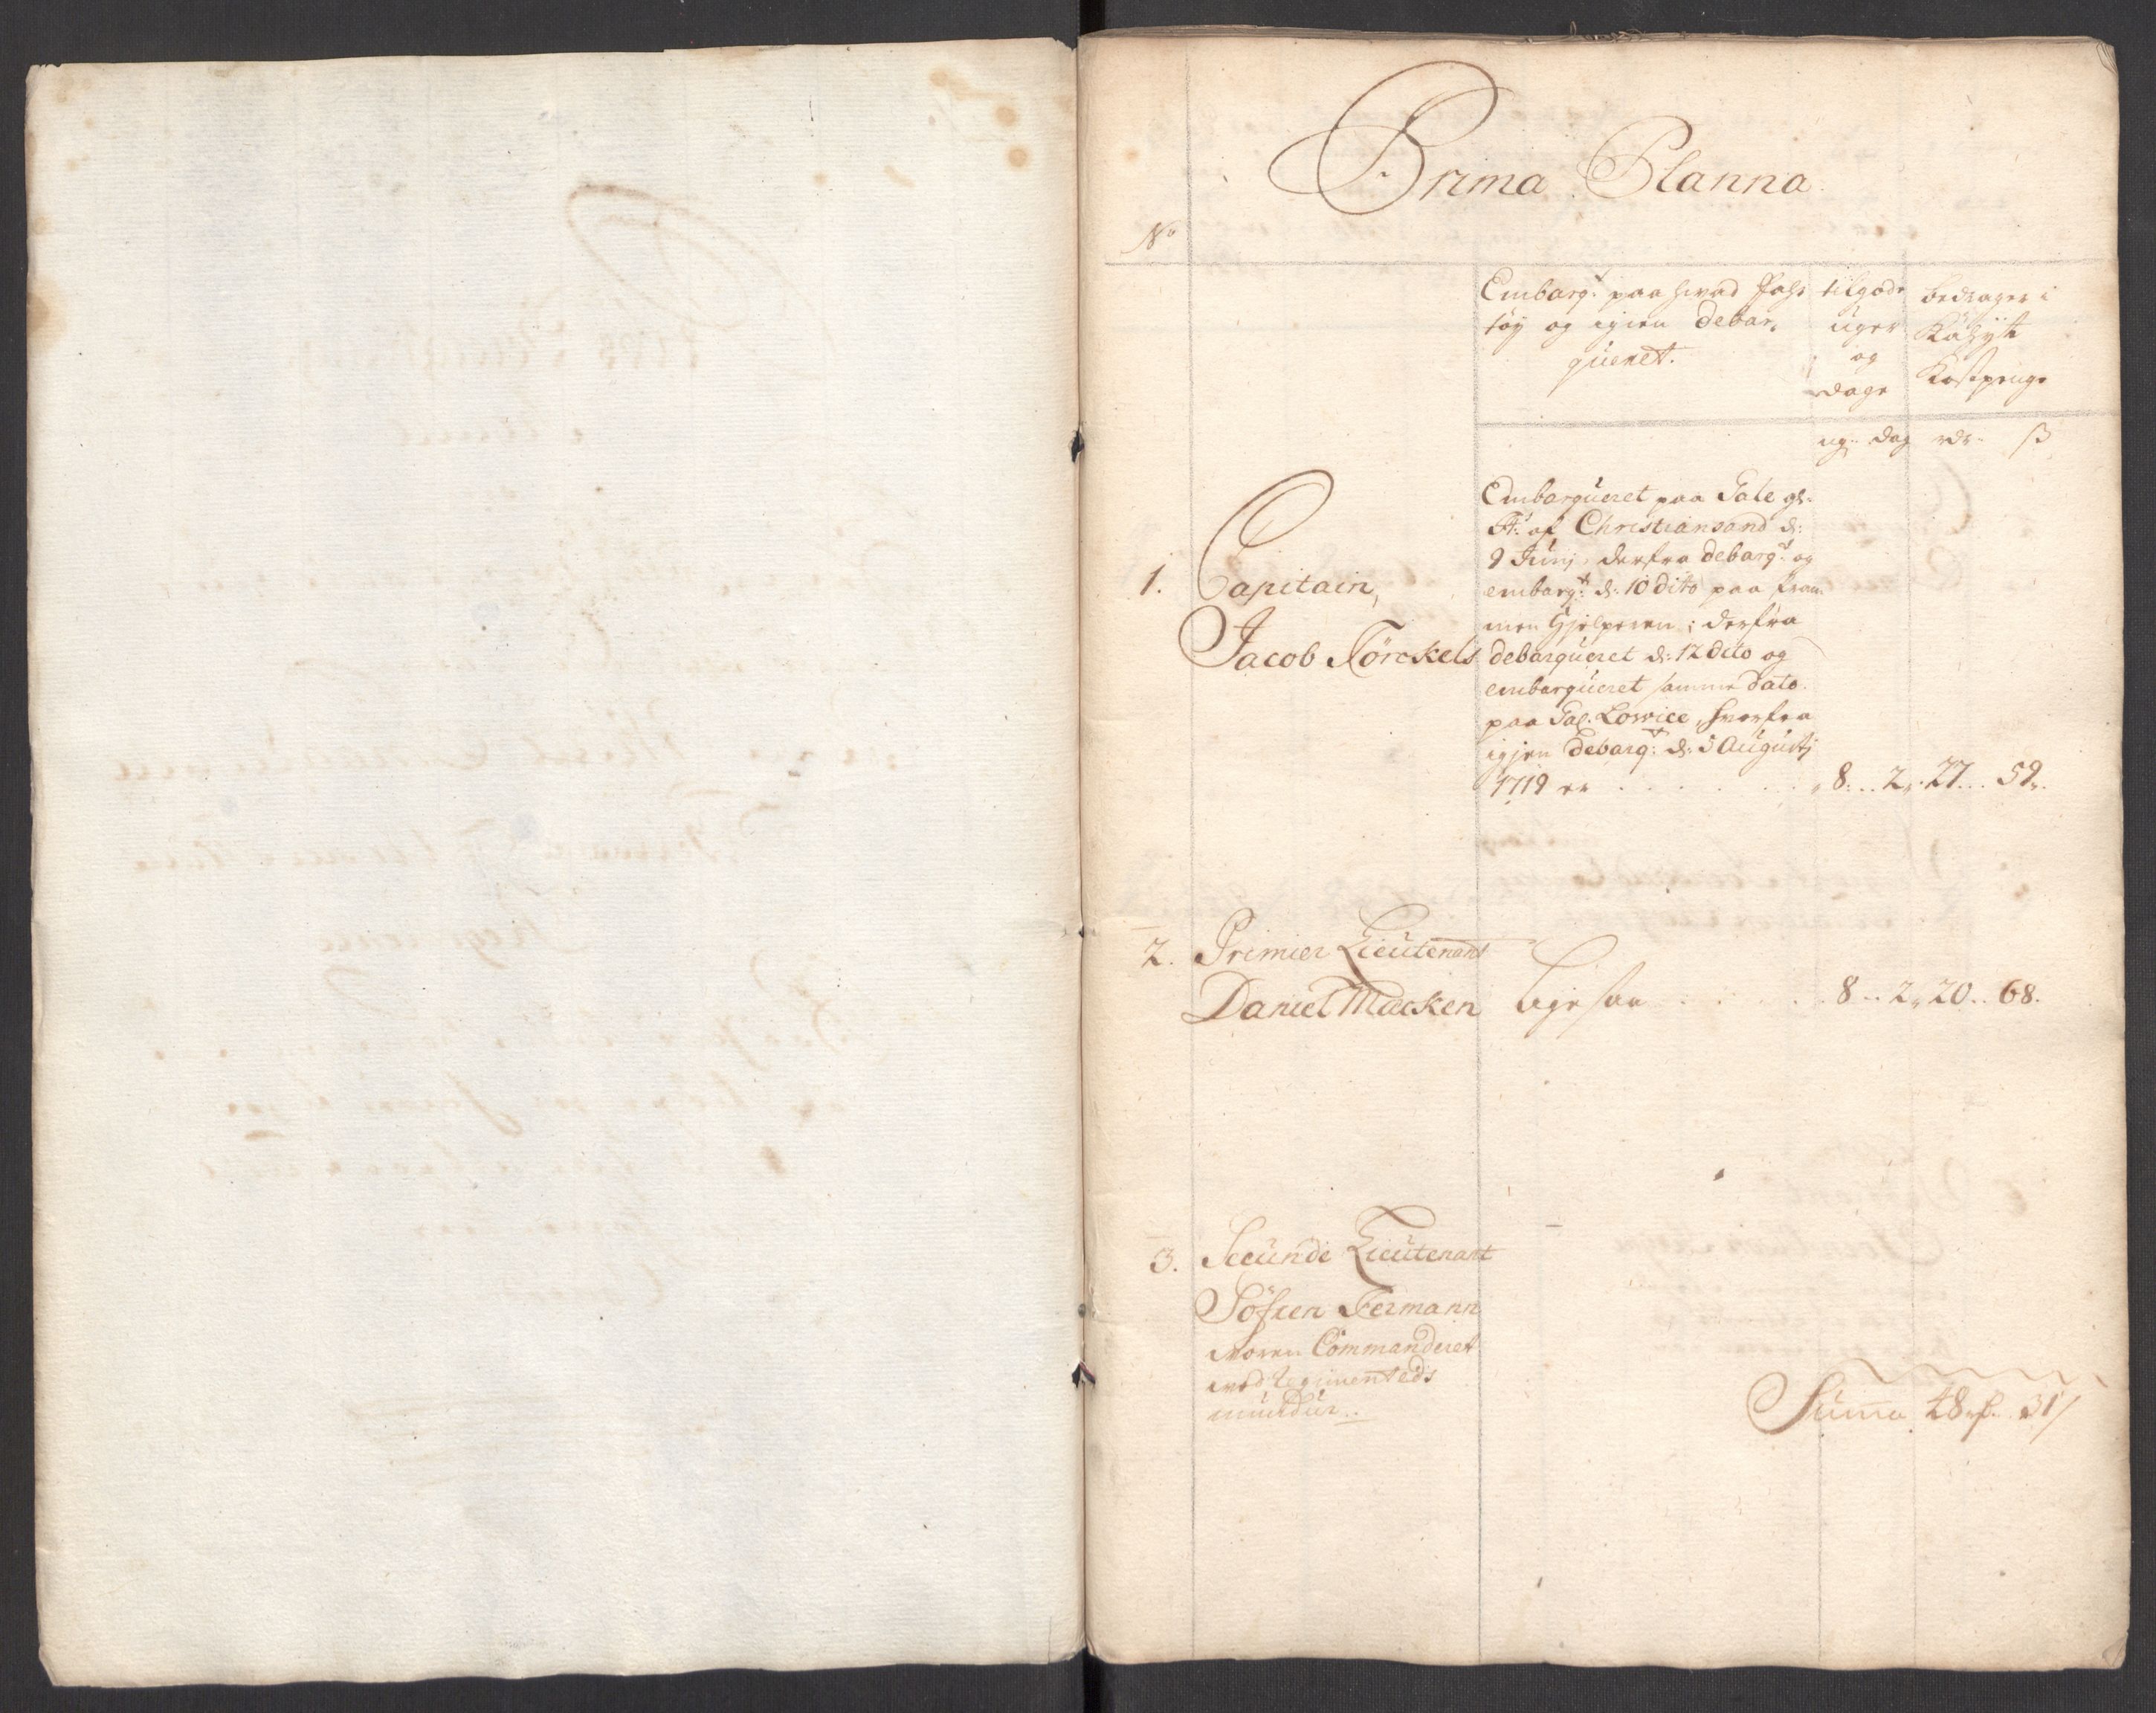 Prima Planna
No
Embargt paa hvad Fahr
töy og igien debar„
queret.
tilgode
uger
og
dage
bedrager i
Kost penge
ug. dag rdr. ß
1. Capitain,
Jacob Törckels
Embargueret paa Gale
af Christiansand d:
9 Junj, derfra debargt og
embargt d: 10 dito paa Pram„
men Hjelperen; derfra
debargueret d: 12 dito og
embargueret samme dato
paa Gal. Lowice, hvorfra
igjen debargt d: 5 Augustj
1719 er . . . . 8. . 2. 27. . 59.
2. Primier Lieutenant
Daniel Macken lige saa . . . . 8. . 2. 20. . 68.
3. Secunde Lieutenant
Söfren Fermann
voren Commanderet
ved Regimenteds
mundur..
Suma 48 31/